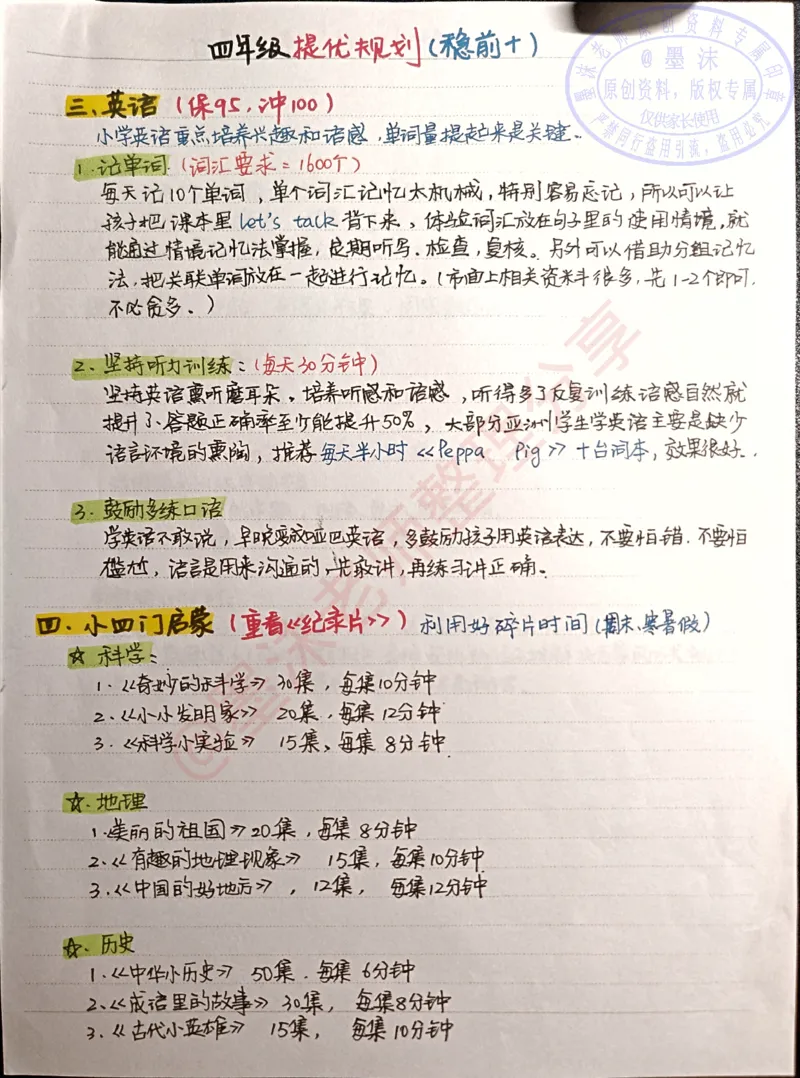 四年级 提优规划(稳前十)
三、英语 (保95,冲100)
小学英语重点培养兴趣和语感,单词量提起来是关键。
1.记单词 (词汇要求=1600个)
每天记10个单词,单个词汇记忆太机械,特别容易忘记,所以可以让
孩子把课本里 let's talk 背下来,体验词汇放在句子里的使用情境,就
能通过情境记忆法掌握,定期听写、检查,复核。另外可以借助分组记忆
法,把关联单词放在一起进行记忆。(市面上相关资料很多,先1-2个即可,
不必贪多。)
2. 坚持听力训练:(每天30分钟)
坚持英语熏听磨耳朵,培养听感和语感,听得多了反复训练语感自然就
提升了、答题正确率至少能提升50%,大部分亚洲学生学英语主要是缺少
语言环境的熏陶,推荐每天半小时《Peppa Pig》+台词本,效果很好。
3.鼓励多练口语
学英语不敢说,早晚变成哑巴英语,多鼓励孩子用英语表达,不要怕错、不要怕
尴尬,语言是用来沟通的,先敢讲,再练习讲正确。
四.小四门启蒙 (重看《纪录片》) 利用好碎片时间(周末、寒暑假)
☆科学:
1.《奇妙的科学》30集,每集10分钟
2.《小小发明家》 20集,每集12分钟
3.《科学小实验》 15集、每集8分钟
☆.地理
1.美丽的祖国》20集,每集8分钟
2.《有趣的地理现象》 15集,每集10分钟
3.《中国的好地方》,12集, 每集12分钟
☆.历史
1.《中华小历史》 50集.每集6分钟
2.《成语里的故事》30集, 每集8分钟
3.《古代小英雄》 15集, 每集10分钟
墨沫老师原创资料专属印章
@墨沫
原创资料,版权专属
仅供家长使用
严禁同行盗用引流,盗用必究
@墨沫老师整理分享